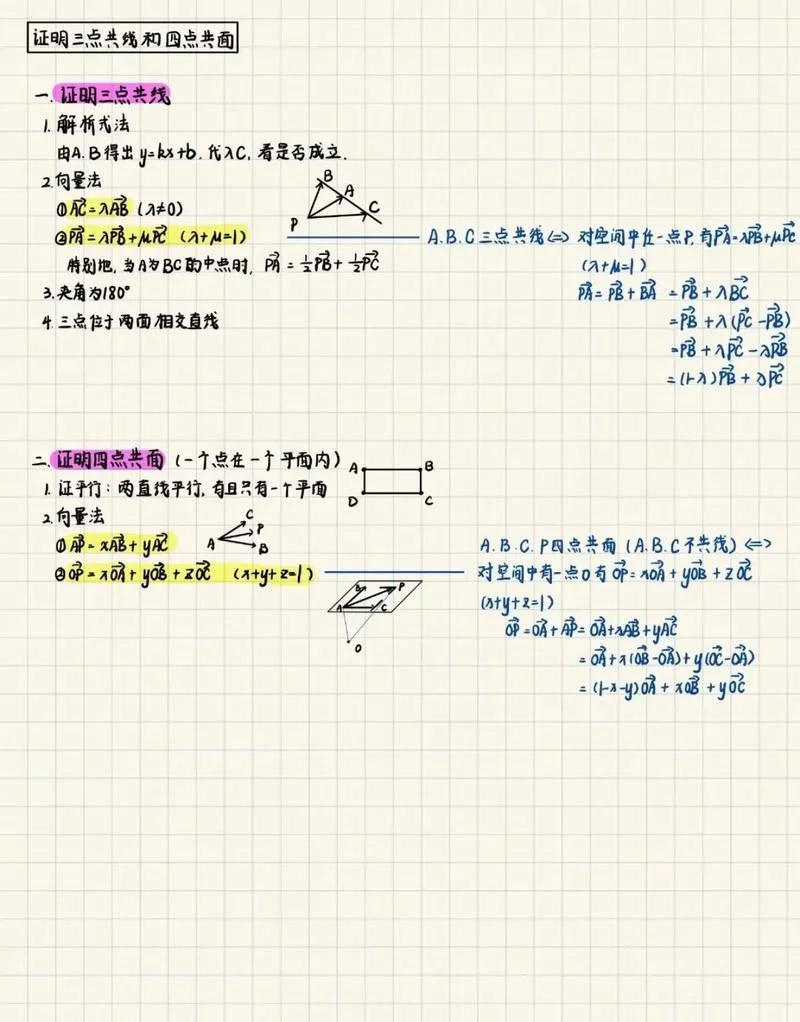 证明三点共线和四点共面
一. 证明三点共线
1. 解析式法
由A.B得出 y=kx+b. 代入C, 看是否成立.
2. 向量法
① \overrightarrow{AC}=λ\overrightarrow{AB} (λ≠0)
② \overrightarrow{PA}=λ\overrightarrow{PB}+μ\overrightarrow{PC} (λ+μ=1)
特别地, 当A为BC的中点时, \overrightarrow{PA}=\frac{1}{2}\overrightarrow{PB}+\frac{1}{2}\overrightarrow{PC}
3. 夹角为180°
4. 三点位于两面相交直线
B
A
C
P
A.B.C三点共线⟺对空间中任一点P, 有\overrightarrow{PA}=λ\overrightarrow{PB}+μ\overrightarrow{PC}
(λ+μ=1)
\overrightarrow{PA}=\overrightarrow{PB}+\overrightarrow{BA}=\overrightarrow{PB}+λ\overrightarrow{BC}
=\overrightarrow{PB}+λ(\overrightarrow{PC}-\overrightarrow{PB})
=\overrightarrow{PB}+λ\overrightarrow{PC}-λ\overrightarrow{PB}
=(1-λ)\overrightarrow{PB}+λ\overrightarrow{PC}
二. 证明四点共面 (一个点在一个平面内)
1. 证平行: 两直线平行, 有且只有一个平面
A B
D C
2. 向量法
① \overrightarrow{AP}=x\overrightarrow{AB}+y\overrightarrow{AC}
C
P
A
B
② \overrightarrow{OP}=x\overrightarrow{OA}+y\overrightarrow{OB}+z\overrightarrow{OC} (x+y+z=1)
B P
A C
O
A.B.C.P四点共面 (A.B.C不共线) ⟺
对空间中有一点O有 \overrightarrow{OP}=x\overrightarrow{OA}+y\overrightarrow{OB}+z\overrightarrow{OC}
(x+y+z=1)
\overrightarrow{OP}=\overrightarrow{OA}+\overrightarrow{AP}=\overrightarrow{OA}+x\overrightarrow{AB}+y\overrightarrow{AC}
=\overrightarrow{OA}+x(\overrightarrow{OB}-\overrightarrow{OA})+y(\overrightarrow{OC}-\overrightarrow{OA})
=(1-x-y)\overrightarrow{OA}+x\overrightarrow{OB}+y\overrightarrow{OC}